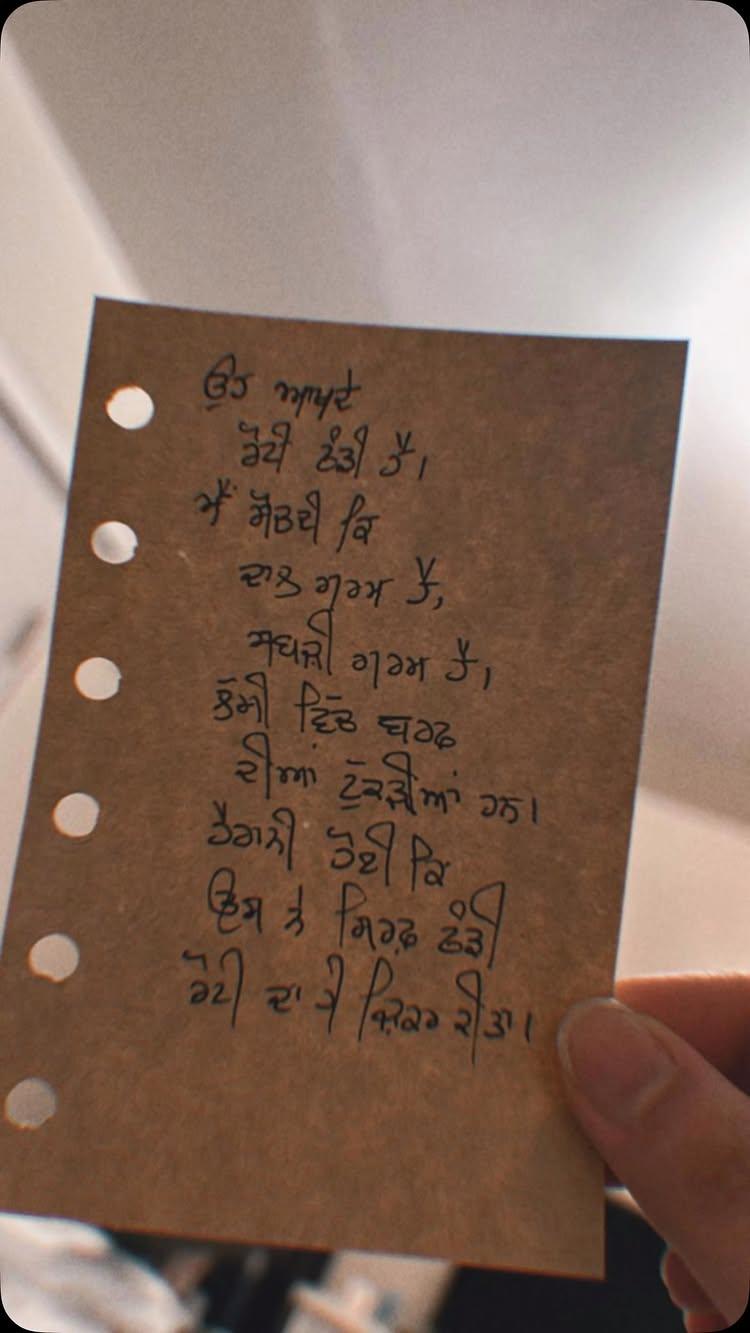 ਉਹ ਆਖਦੇ
ਰੋਟੀ ਠੰਡੀ ਹੈ।
ਮੈਂ ਸੋਚਦੀ ਕਿ
ਦਾਲ ਗਰਮ ਹੈ,
ਸਬਜ਼ੀ ਗਰਮ ਹੈ,
ਲੱਸੀ ਵਿੱਚ ਬਰਫ
ਦੀਆਂ ਟੁੱਕੜੀਆਂ ਹਨ।
ਹੈਰਾਨੀ ਹੋਈ ਕਿ
ਉਸ ਨੇ ਸਿਰਫ਼ ਠੰਡੀ
ਰੋਟੀ ਦਾ ਹੀ ਜ਼ਿਕਰ ਕੀਤਾ।